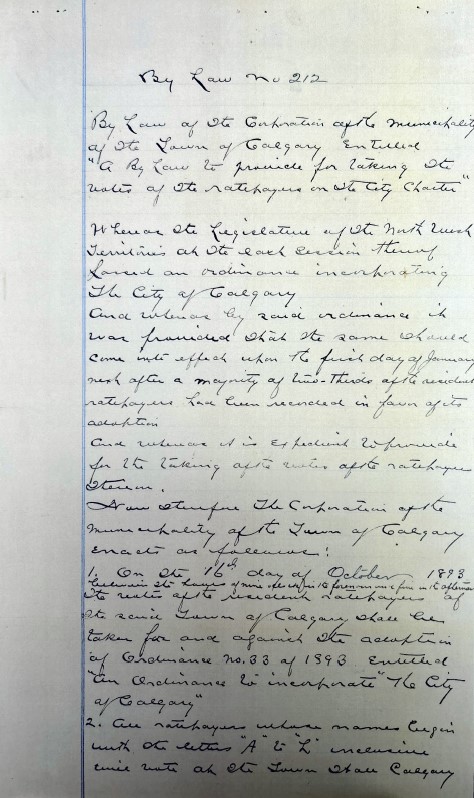 By Law No 212
By Law of the Corporation of the Municipality
of the Town of Calgary Entitled
"A By Law to provide for taking the
votes of the ratepayers on the City Charter"
Whereas the Legislature of the North West
Territories at the last session thereof
passed an ordinance incorporating
The City of Calgary
And whereas by said ordinance it
was provided that the same should
come into effect upon the first day of January
next after a majority of two-thirds of the resident
ratepayers had been recorded in favor of its
adoption
And whereas it is expedient to provide
for the taking of the votes of the ratepayers
thereon.
Now therefore The Corporation of the
municipality of the Town of Calgary
enacts as follows:
1. On the 16th day of October 1893
between the hours of nine o'clock in the forenoon & five in the afternoon
the votes of the resident ratepayers of
the said Town of Calgary shall be
taken for and against the adoption
of Ordinance No. 33 of 1893 Entitled
"An Ordinance to incorporate "The City
of Calgary"
2. All ratepayers whose names begin
with the letters "A" to "L" inclusive
will vote at the Town Hall Calgary